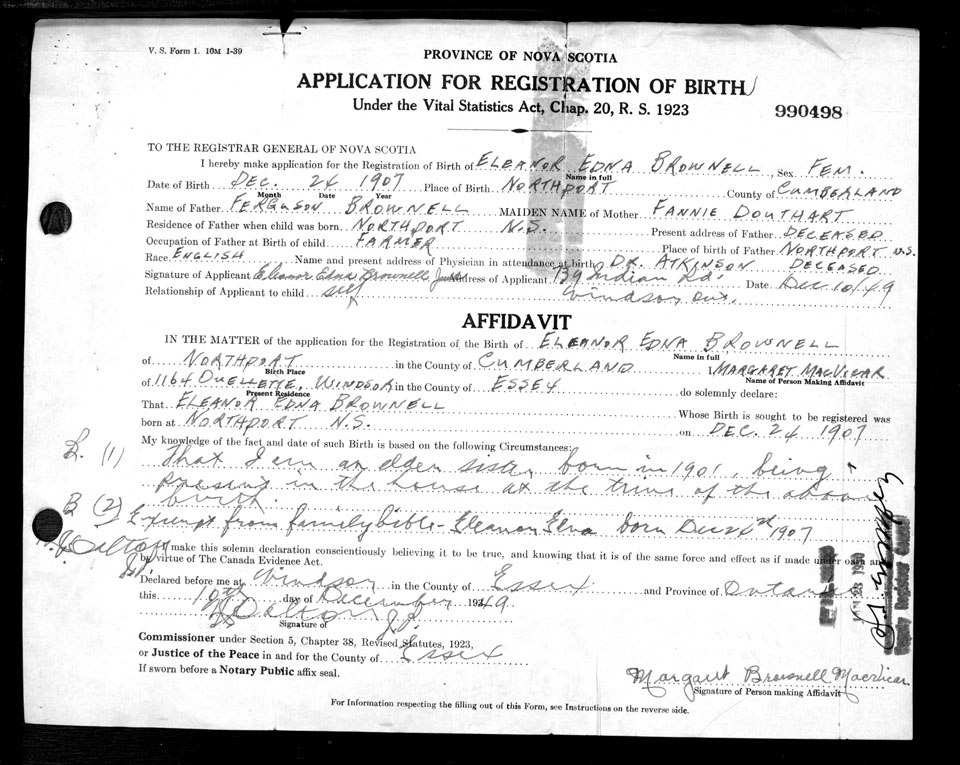 V. S. Form 1. 10M 1-39
PROVINCE OF NOVA SCOTIA
APPLICATION FOR REGISTRATION OF BIRTH
Under the Vital Statistics Act, Chap. 20, R. S. 1923
990498
TO THE REGISTRAR GENERAL OF NOVA SCOTIA
I hereby make application for the Registration of Birth of ELEANOR EDNA BROWNELL, Sex FEM.
Name in full
Date of Birth DEC. 24 1907 Place of Birth NORTHPORT County of CUMBERLAND
Month Date Year
Name of Father FERGUSON BROWNELL MAIDEN NAME of Mother FANNIE DOUTHART
Residence of Father when child was born NORTHPORT N.S. Present address of Father DECEASED
Occupation of Father at Birth of child FARMER Place of birth of Father NORTHPORT N.S.
Race ENGLISH Name and present address of Physician in attendance at birth DR. ATKINSON DECEASED
Signature of Applicant Eleanor Edna Brownell Address of Applicant 139 Indian Rd. Date Dec 10/49
Relationship of Applicant to child self Windsor Ont.
AFFIDAVIT
IN THE MATTER of the application for the Registration of the Birth of ELEANOR EDNA BROWNELL
Name in full
of NORTHPORT in the County of CUMBERLAND I, MARGARET MACVICAR
Birth Place Name of Person Making Affidavit
of 1164 OUELLETTE, WINDSOR in the County of ESSEX do solemnly declare:
Present Residence
That ELEANOR EDNA BROWNELL Whose Birth is sought to be registered was
born at NORTHPORT N.S. on DEC. 24 1907
My knowledge of the fact and date of such Birth is based on the following Circumstances:
(1) That I am an elder sister born in 1901, being
present in the house at the time of the above
birth.
B (2) Exempt from family bible - Eleanor Edna born Dec 24 1907
I make this solemn declaration conscientiously believing it to be true, and knowing that it is of the same force and effect as if made under oath and
by virtue of The Canada Evidence Act.
Declared before me at Windsor in the County of Essex and Province of Ontario
this 10th day of December 1949
W Dalton J.P.
Signature of
Commissioner under Section 5, Chapter 38, Revised Statutes, 1923,
or Justice of the Peace in and for the County of Essex
If sworn before a Notary Public affix seal.
Margaret Brownell Macvicar
Signature of Person making Affidavit
For Information respecting the filling out of this Form, see Instructions on the reverse side.